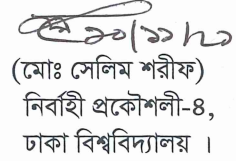 ২০/১১/২০
(মোঃ সেলিম শরীফ)
নির্বাহী প্রকৌশলী-৪,
ঢাকা বিশ্ববিদ্যালয় ।